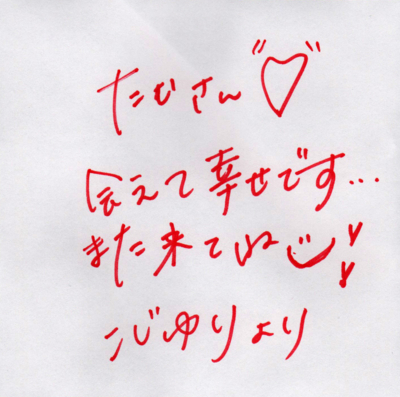 たむさん♡
会えて幸せです...
また来てね!!
こじゆりより